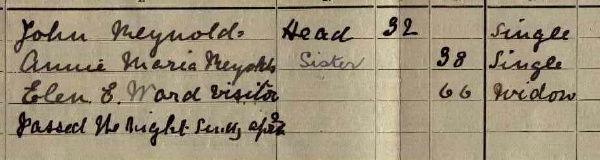 John Meynolds Head 32 Single
Annie Maria Meynolds Sister 38 Single
Elen E. Ward Visitor 66 Widow
Passed the Night Sunday